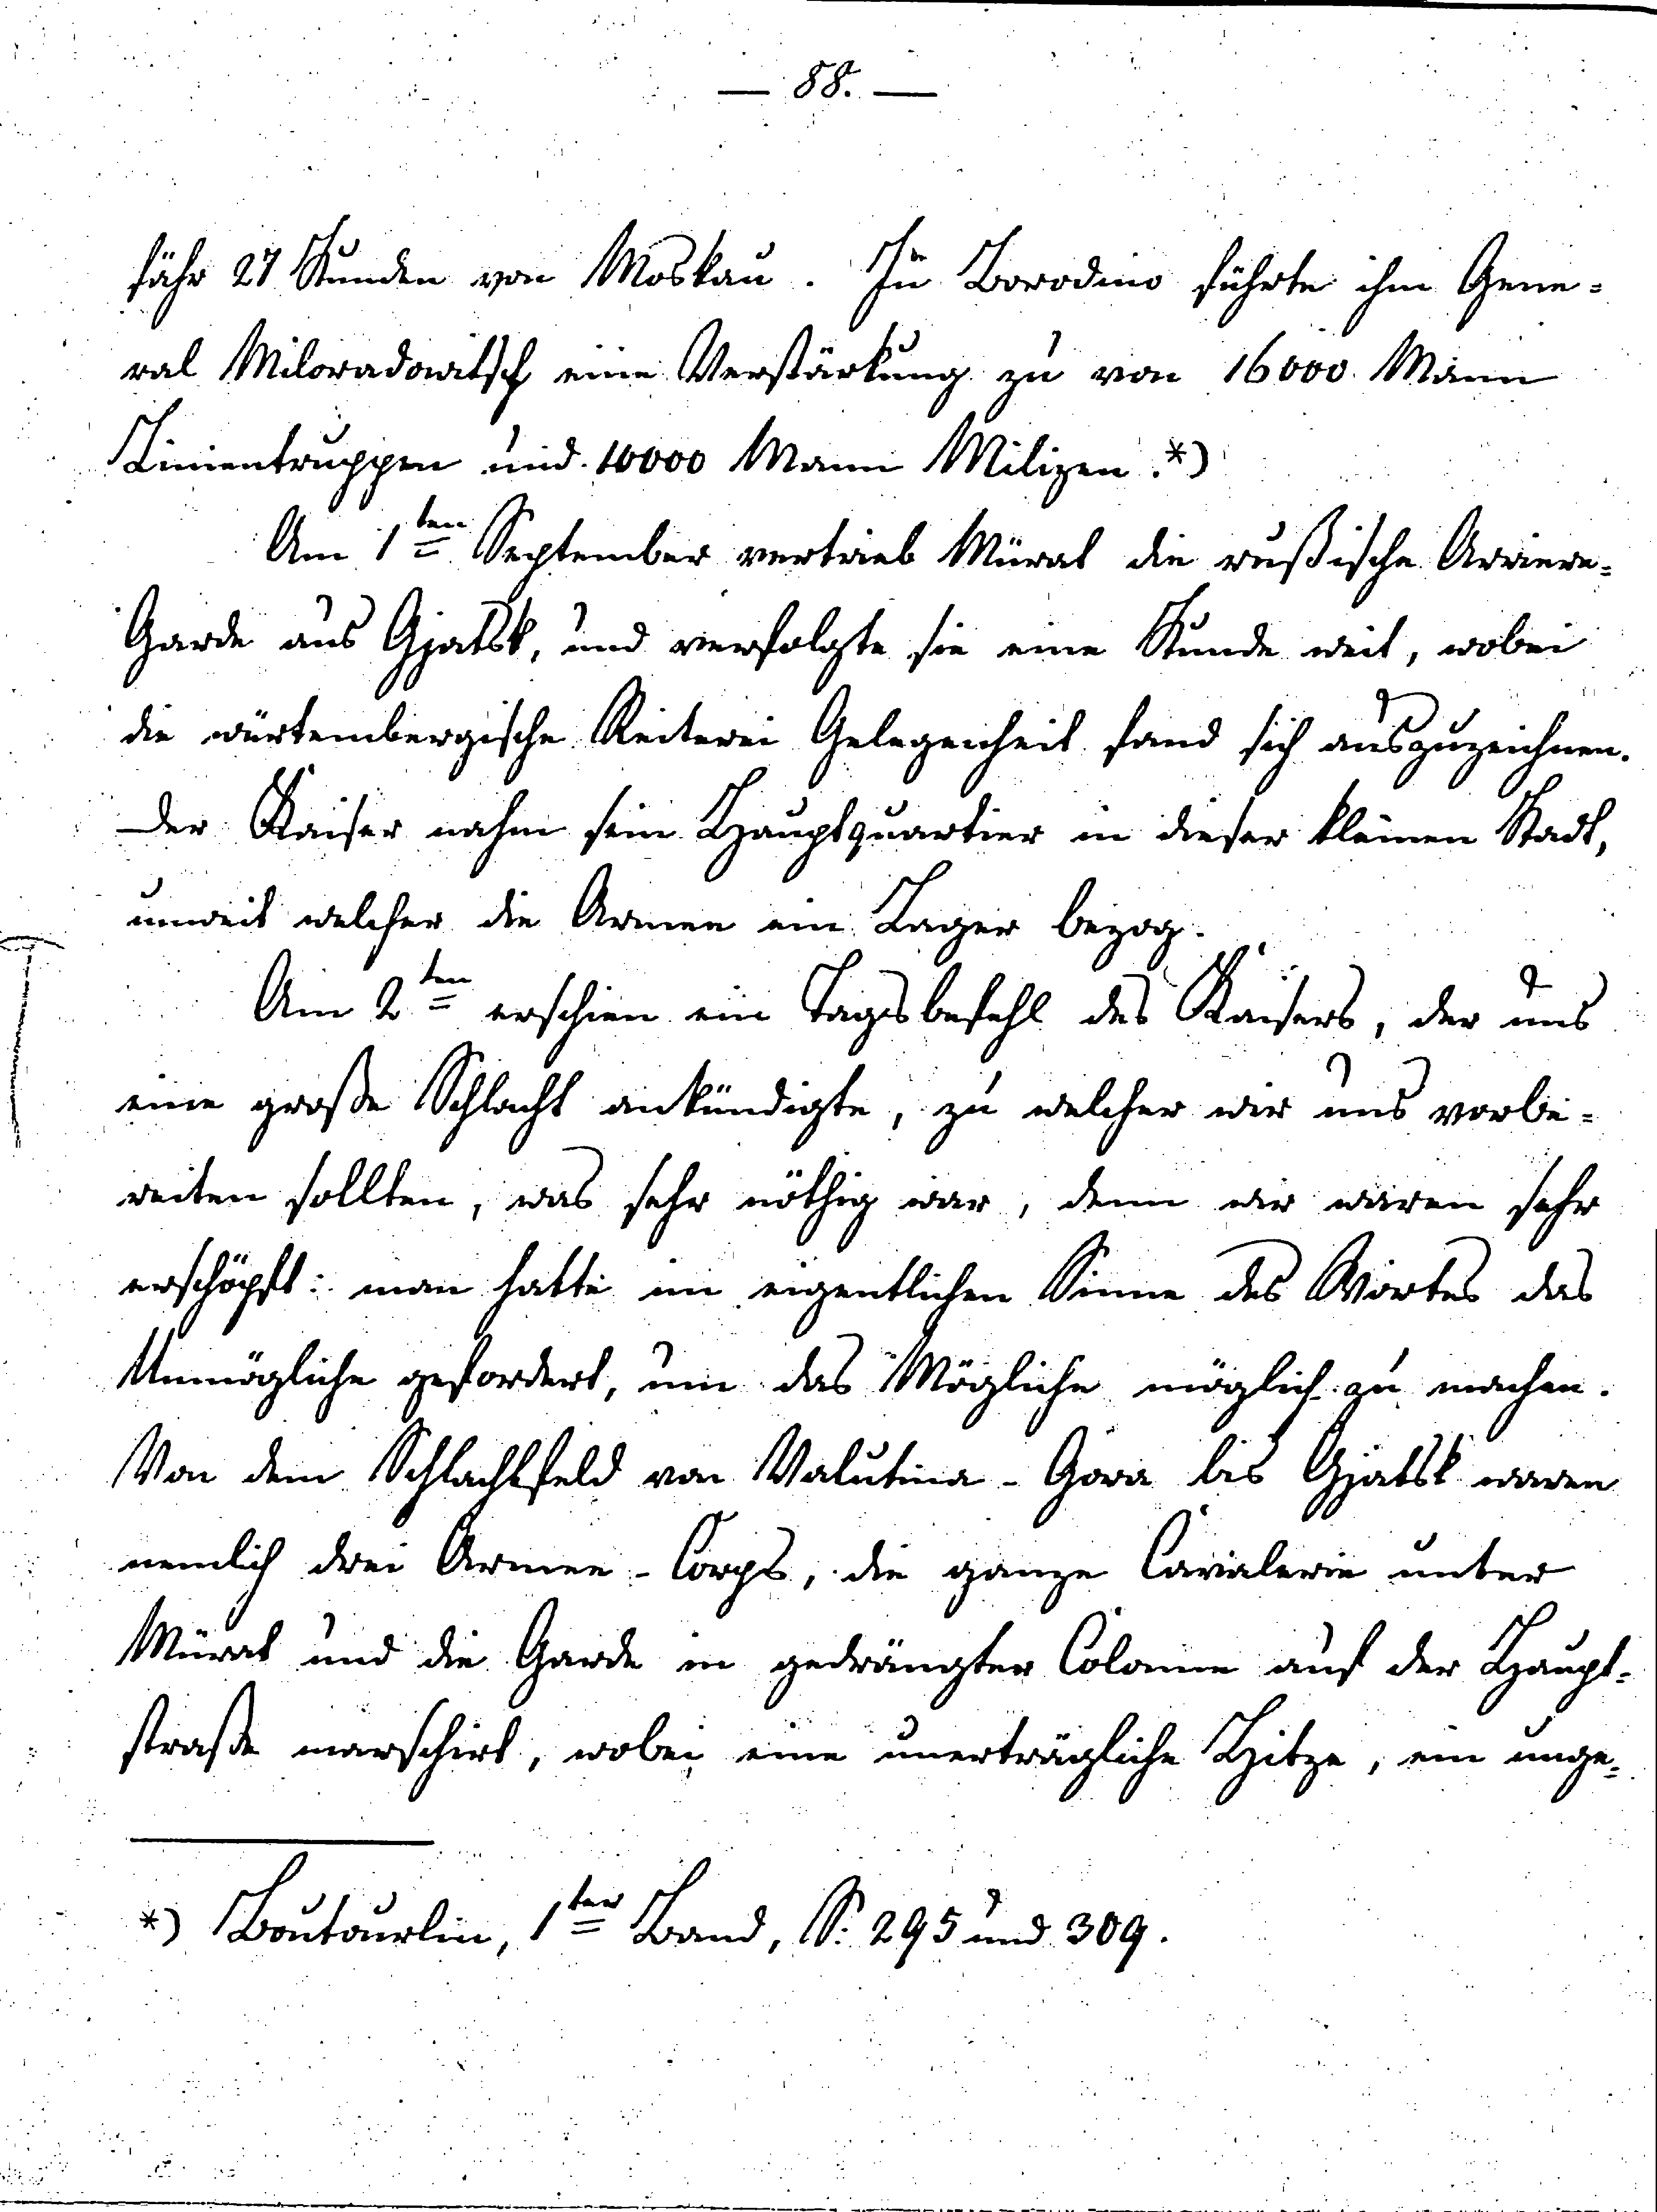 — 88. —
fähr 27 Stunden von Moskau. In Borodino führte ihm Gene-
ral Miloradowitsch eine Verstärkung zu von 16000 Mann
Linientruppen und 10000 Mann Milizen.*)
Am 1ten September vertrieb Mürat die rußische Arriere-
Garde aus Gjatsk, und verfolgte sie eine Stunde weit, wobei
die würtembergische Reiterei Gelegenheit fand sich auszuzeichnen.
Der Kaiser nahm sein Hauptquartier in dieser kleinen Stadt,
unweit welcher die Armee ein Lager bezog.
Am 2ten erschien ein Tagsbefehl des Kaisers, der uns
eine große Schlacht ankündigte, zu welcher wir uns vorbe-
reiten sollten, was sehr nöthig war, denn wir waren sehr
erschöpft: man hatte im eigentlichen Sinne des Wortes das
Unmögliche gefordert, um das Mögliche möglich zu machen.
Von dem Schlachtfeld von Valutina-Gora bis Gjatsk waren
nemlich drei Armee-Corps, die ganze Cavalerie unter
Mürat und die Garde in gedrängter Colonne auf der Haupt-
straße marschirt, wobei eine unerträgliche Hitze, ein unge-
*) Boutourlin, 1ter Band, S. 295 und 309.